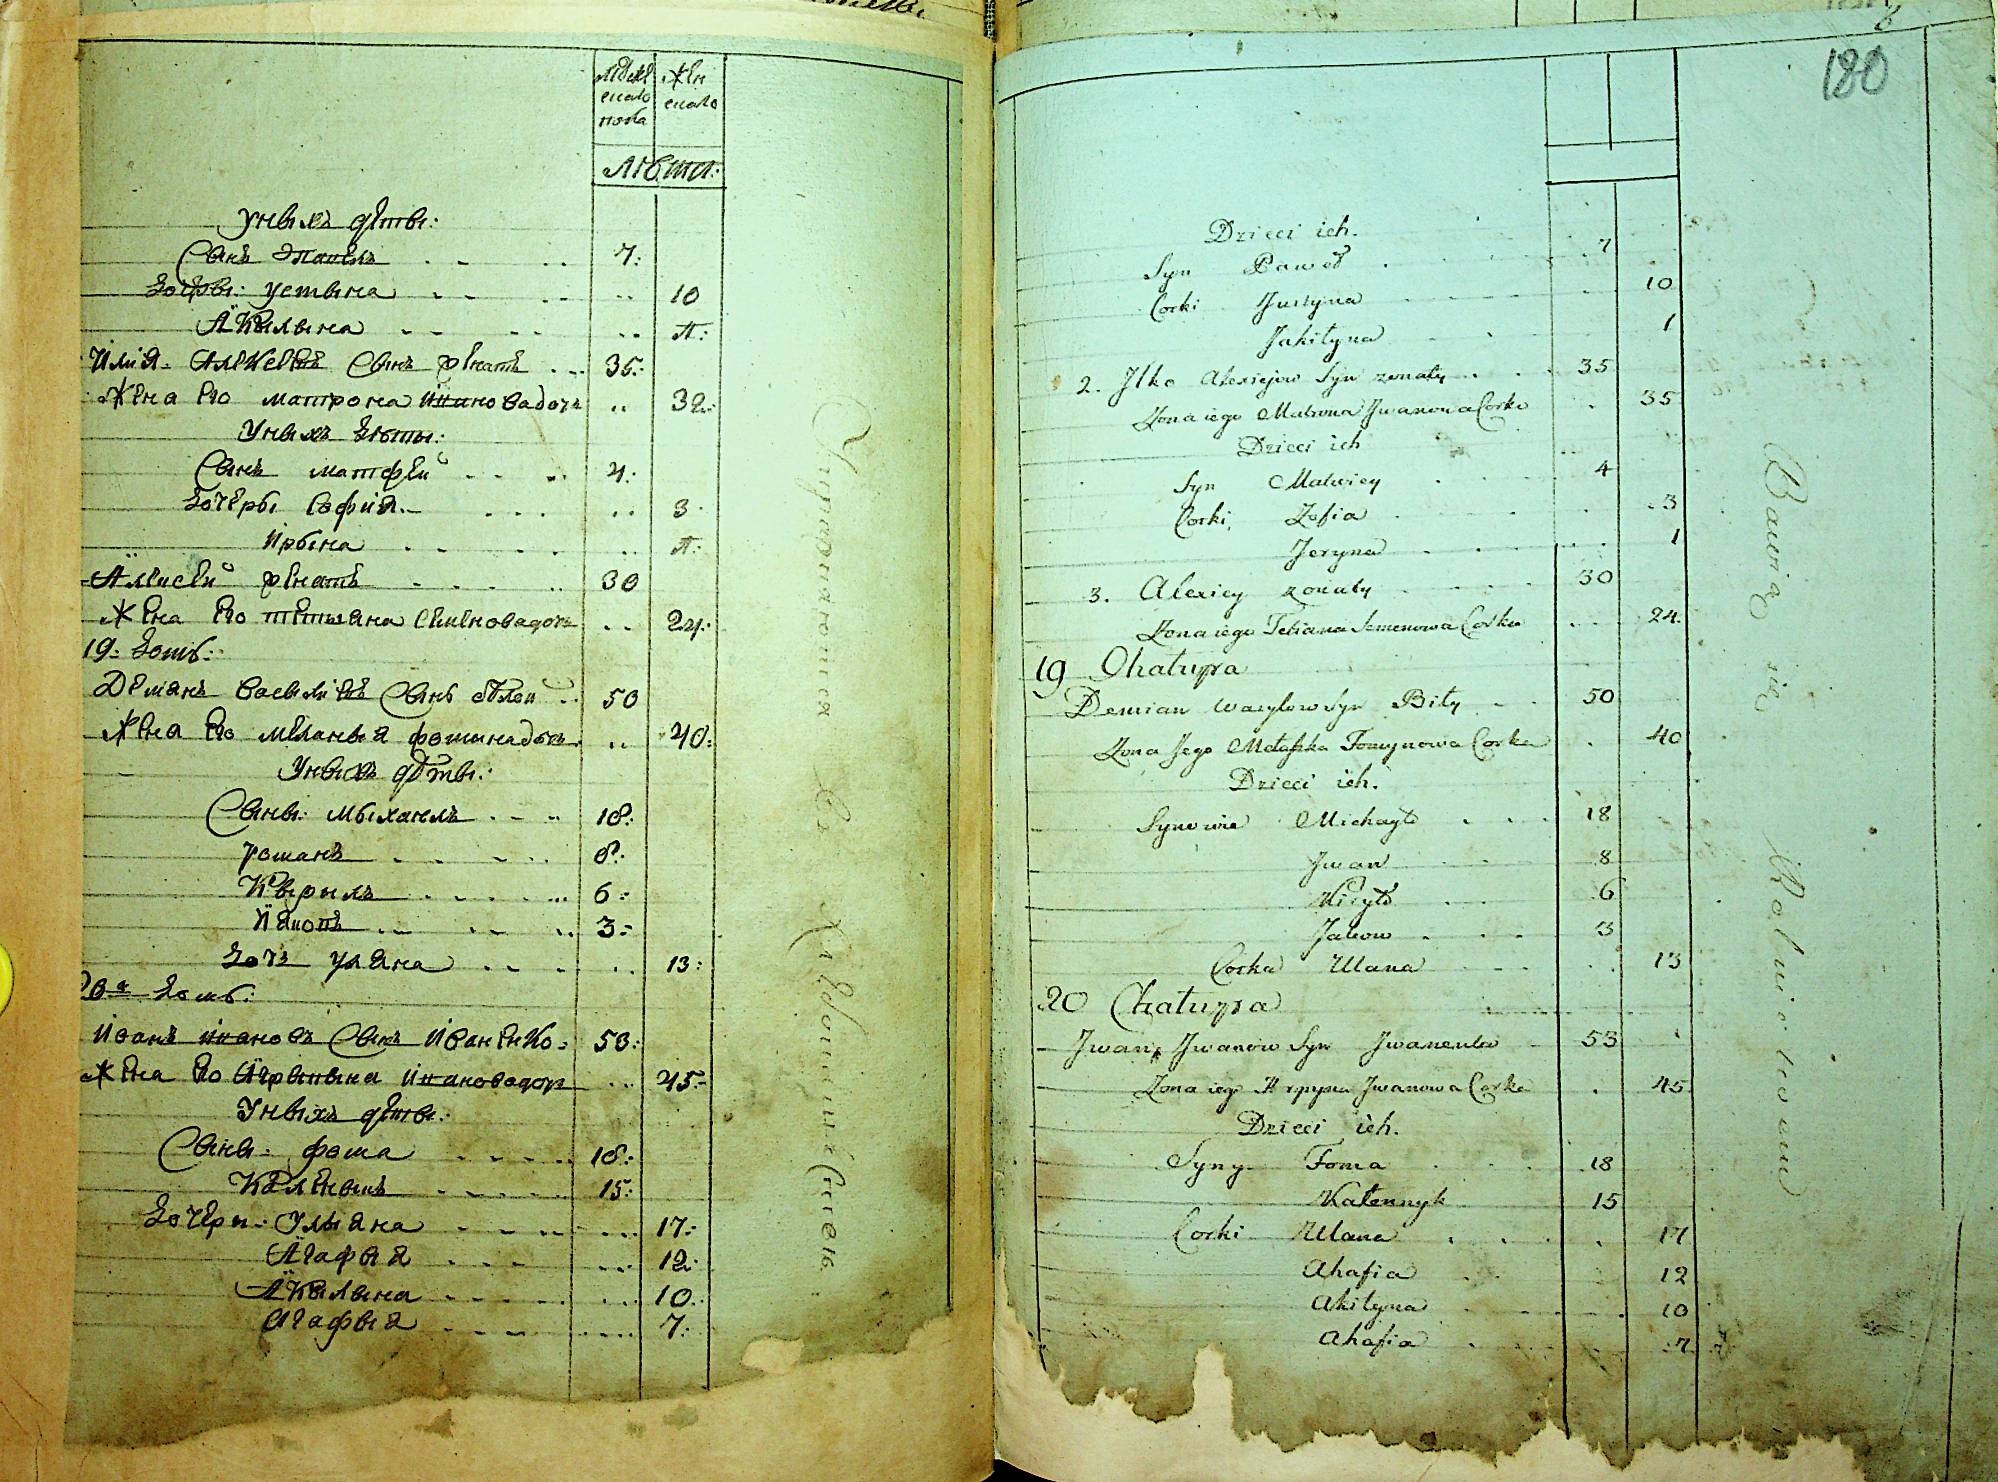 мужеска пола
женска
лѣта:
У нихъ дѣти:
Синъ Павелъ 7:
Дочери: Устина 10
Акилина 1:
Илия Алексеевъ Синъ женатъ 35:
Жена его матрона Иванова дочь 32:
У нихъ дѣти:
Синъ матфей 4:
Дочери София 3
Ирина 1:
Алексей женатъ 30
Жена его тетяна Семенова дочь 24:
19: домъ:
Демянъ Василиевъ Синъ белой 50
Жена его мелания фомина дочь 40:
У нихъ дѣти:
Сини: михаилъ 18:
романъ 8:
Кирилъ 6:
Яковъ 3:
дочь уляна 13:
20й домъ:
Иванъ Ивановъ Синъ Иваненко 53:
Жена его Агрипина Иванова дочь 45:
У нихъ дѣти:
Сини: фома 18:
Каленикъ 15:
Дочери: Улияна 17:
Агафия 12:
Акилина 10:
Агафия 7:
180
Dzieci ich.
Syn Paweł 7
Corki Justyna 10
Jakilyna 1
2. Jlko Alexiejow Syn zonaty 35
Zona iego Matrona Jwanowa Corka 35
Dzieci ich
Syn Matwiey 4
Corki Zofia 3
Jeryna 1
3. Alexiey zonaty 30
Zona iego Tetiana Semenowa Corka 24.
19 Chatupa
Demian Wasylow Syn Biły 50
Zona Jego Melaszka Fomynowa Corka 40
Dzieci ich.
Synowie Michayło 18
Jwan 8
Kiryło 6
Jakow 3
Corka Ulana 13
20 Chatupa
Jwan Jwanow Syn Jwanenko 53
Zona iego Hrypyna Jwanowa Corka 45
Dzieci ich.
Syny Foma 18
Kalennyk 15
Corki Ulana 17
Ahafia 12
Akilyna 10
Ahafia 7
Bawią się Rolnictwem